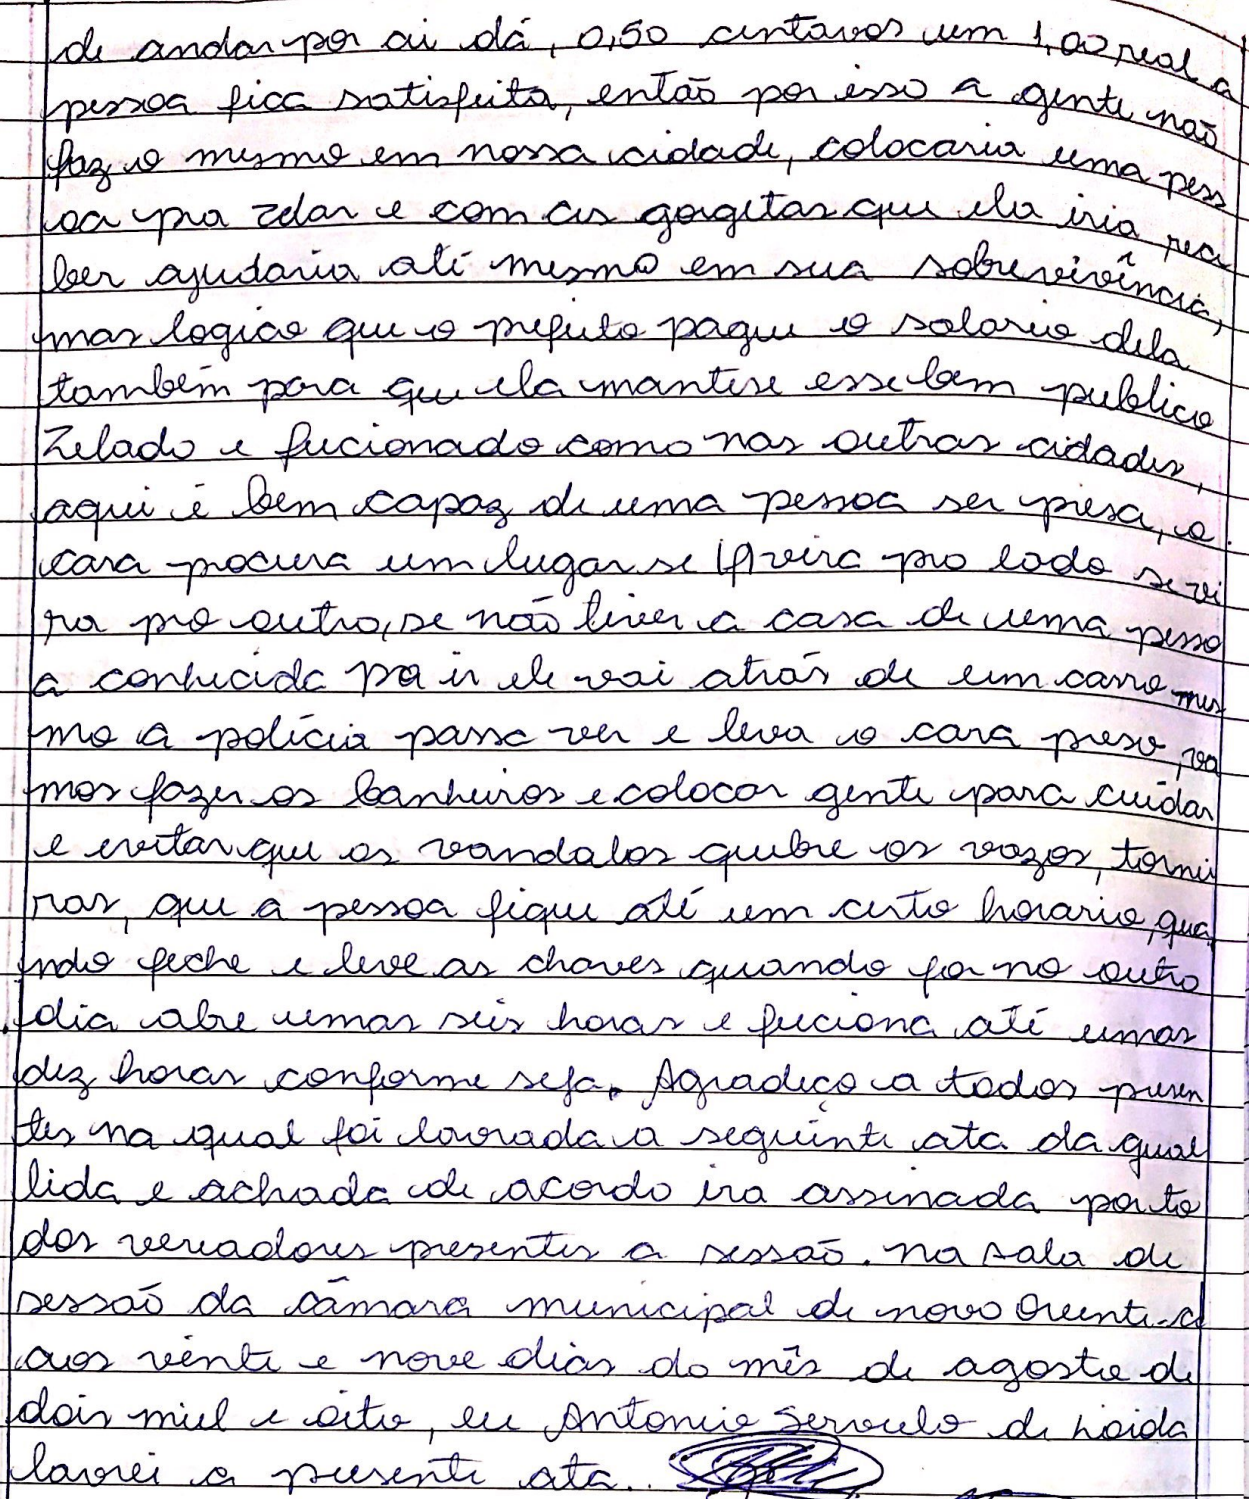 de andar por ai dá, 0,50 centavos um 1,00 real a
pessoa fica satisfeita, então por isso a gente não
faz o mesmo em nossa cidade, colocaria uma pess
oa pra zelar e com as gorgetas que ela iria rece
ber ajudaria até mesmo em sua sobrevivência,
mas logico que o prefeito pague o salario dela
também para que ela mantese esse bem publico
Zelado e fucionado como nas outras cidades,
aqui é bem capaz de uma pessoa ser presa, o
cara procura um lugar se vira pro lado se vi
ra pro outro, se não tiver a casa de uma pesso
a conhecida pra ir ele vai atrás de um carro mes
mo a polícia passa ver e leva o cara preso, va
mos fazer os banheiros e colocar gente para cuidar
e evitar que os vandalos quebre os vazos, tornei
ras, que a pessoa fique até um certo horario, qua
ndo feche e leve as chaves quando for no outro
dia abre umas seis horas e fuciona até umas
dez horas conforme seja. Agradeço a todos presen
tes na qual foi lavrada a seguinte ata da qual
lida e achada de acordo ira assinada por to
dos vereadores presentes a sessão. na sala de
sessão da câmara municipal de novo Oriente-
aos vinte e nove dias do mês de agosto de
dois miel e oito, eu Antonio Servulo de
lavrei a presente ata..